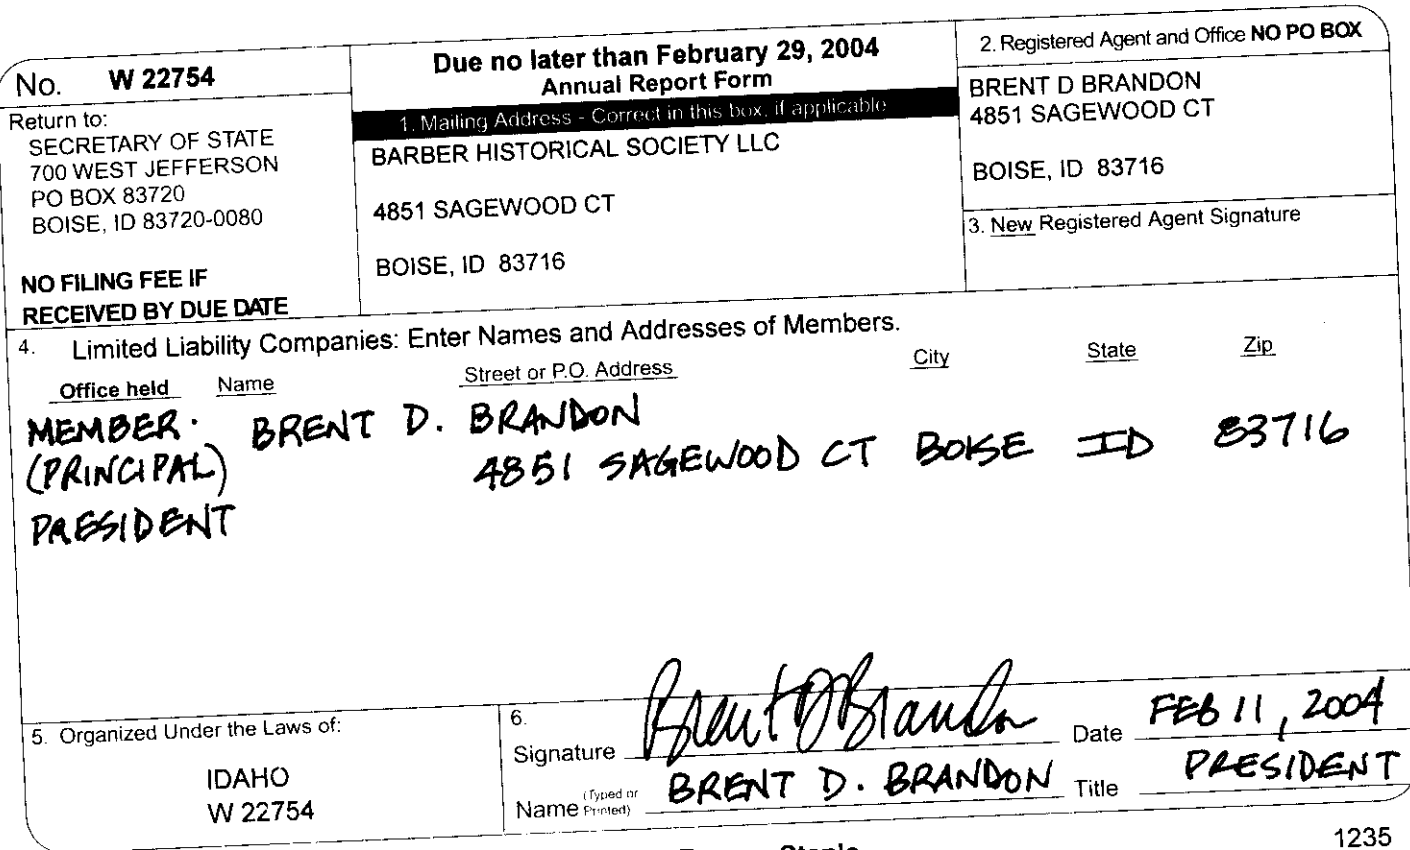 No. W 22754
Return to:
SECRETARY OF STATE
700 WEST JEFFERSON
PO BOX 83720
BOISE, ID 83720-0080
NO FILING FEE IF
RECEIVED BY DUE DATE
Due no later than February 29, 2004
Annual Report Form
1. Mailing Address - Correct in this box, if applicable
BARBER HISTORICAL SOCIETY LLC
4851 SAGEWOOD CT
BOISE, ID 83716
2. Registered Agent and Office NO PO BOX
BRENT D BRANDON
4851 SAGEWOOD CT
BOISE, ID 83716
3. New Registered Agent Signature
4. Limited Liability Companies: Enter Names and Addresses of Members.
Office held Name Street or P.O. Address City State Zip
MEMBER. BRENT D. BRANDON
(PRINCIPAL) 4851 SAGEWOOD CT BOISE ID 83716
PRESIDENT
5. Organized Under the Laws of:
IDAHO
W 22754
6.
Signature Brent D Brandon Date FEB 11, 2004
Name (Typed or Printed) BRENT D. BRANDON Title PRESIDENT
1235